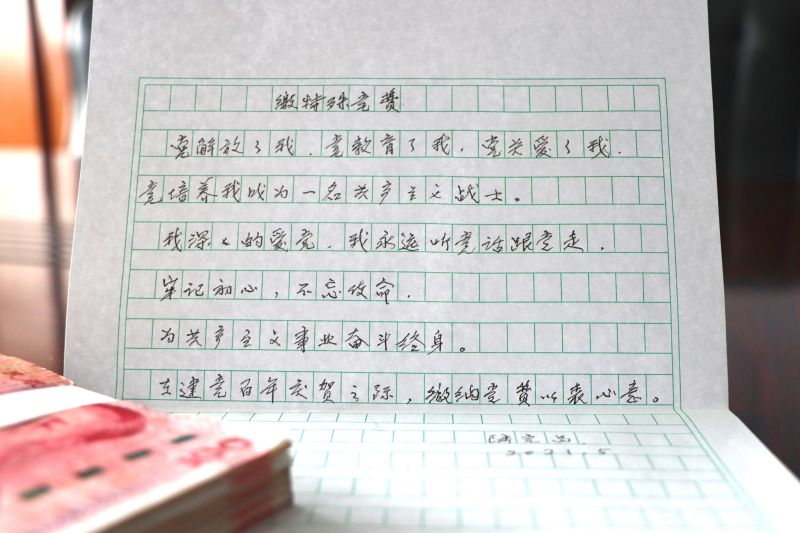 缴特殊党费
党解放了我,党教育了我,党关爱了我.
党培养我成为一名共产主义战士。
我深々的爱党,我永远听党话跟党走.
牢记初心,不忘使命.
为共产主义事业奋斗终身。
在建党百年庆贺之际,缴纳党费以表心意。
2021.5
100